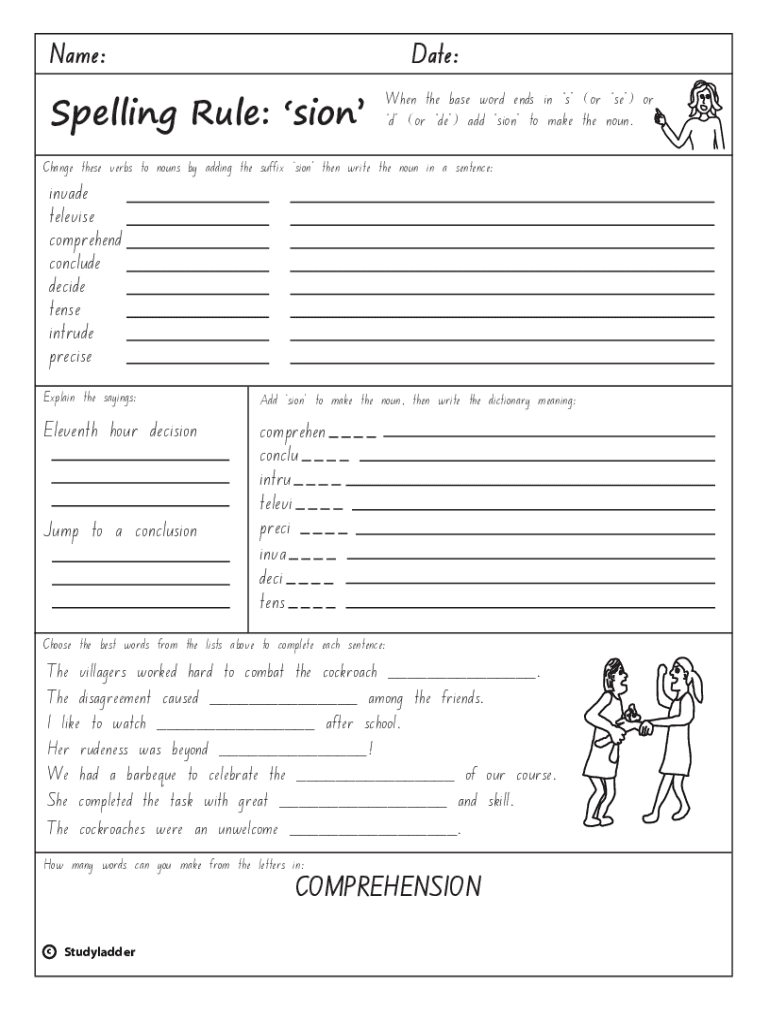 Name: Date:
Spelling Rule: ‘sion’
When the base word ends in ‘s’ (or ‘se’) or
‘d’ (or ‘de’) add ‘sion’ to make the noun.
Change these verbs to nouns by adding the suffix ‘sion’ then write the noun in a sentence:
invade ____________ ____________
televise ____________ ____________
comprehend ____________ ____________
conclude ____________ ____________
decide ____________ ____________
tense ____________ ____________
intrude ____________ ____________
precise ____________ ____________
Explain the sayings:
Eleventh hour decision
Jump to a conclusion
Add ‘sion’ to make the noun, then write the dictionary meaning:
comprehen _ _ _ _ ____________
conclu _ _ _ _ ____________
intru _ _ _ _ ____________
televi _ _ _ _ ____________
preci _ _ _ _ ____________
inva _ _ _ _ ____________
deci _ _ _ _ ____________
tens _ _ _ _ ____________
Choose the best words from the lists above to complete each sentence:
The villagers worked hard to combat the cockroach ________________.
The disagreement caused ________________ among the friends.
I like to watch ________________ after school.
Her rudeness was beyond ________________!
We had a barbeque to celebrate the ________________ of our course.
She completed the task with great ________________ and skill.
The cockroaches were an unwelcome ________________.
How many words can you make from the letters in:
COMPREHENSION
© Studyladder